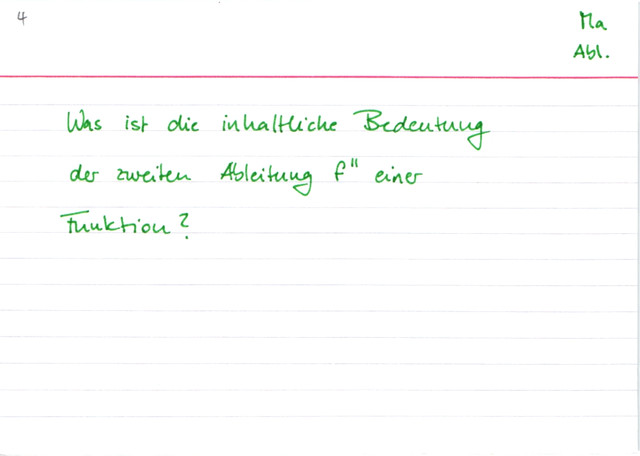 4
Ma
Abl.
Was ist die inhaltliche Bedeutung
der zweiten Ableitung f" einer
Funktion?